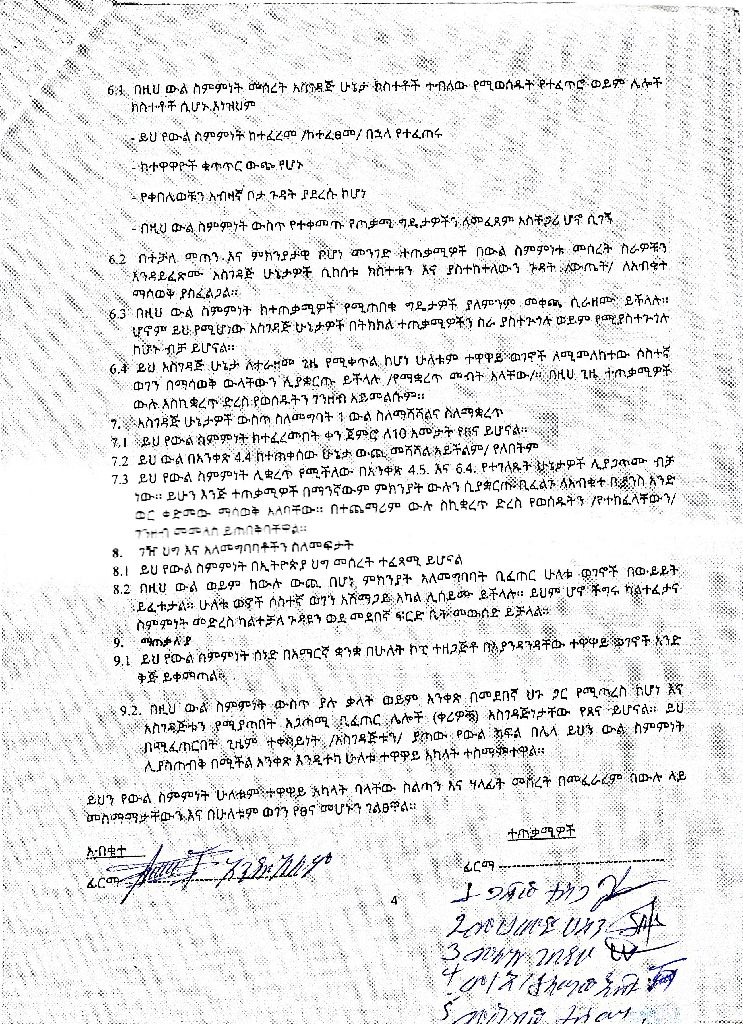 6.1 በዚህ ውል ስምምነት መሰረት አስገዳጅ ሁኔታ ክስተቶች ተብለው የሚወሰዱት የተፈጥሮ ወይም ሌሎች
ክስተቶች ሲሆኑ እነዝህም
- ይህ የውል ስምምነት ከተፈረመ /ከተፈፀመ/ በኋላ የተፈጠሩ
- ከተዋዋዮች ቁጥጥር ውጭ የሆኑ
- የቀበሌወቹን አብዛኛ ቦታ ጉዳት ያደረሱ ከሆነ
- በዚህ ውል ስምምነት ውስጥ የተቀመጡ የጠቃሚ ግዴታዎችን ለመፈጸም አስቸጋሪ ሆኖ ሲገኝ
6.2 በተቻለ መጠን እና ምክንያታዊ በሆነ መንገድ ተጠቃሚዎች በውል ስምምነቱ መሰረት ስራዎቹን
እንዳይፈጽሙ አስገዳጅ ሁኔታዎች ሲከሰቱ ክስተቱን እና ያስተከተለውን ጉዳት ለውጤት/ ለአብቁተ
ማሳወቅ ያስፈልጋል።
6.3 በዚህ ውል ስምምነት ከተጠቃሚዎች የሚጠበቁ ግዴታዎች ያለምንም መቀጫ ሲራዘሙ ይችላሉ።
ሆኖም ይህ የሚሆነው አስገዳጅ ሁኔታዎች በትክክል ተጠቃሚዎችን ስራ ያስተጓጎሉ ወይም የሚያስተጓጎሉ
ከሆኑ ብቻ ይሆናል።
6.4 ይህ አስገዳጅ ሁኔታ ለተራዘመ ጊዜ የሚቀጥል ከሆነ ሁለቱም ተዋዋይ ወገኖች ለሚመለከተው ሶስተኛ
ወገን በማሳወቅ ውላቸውን ሊያቋርጡ ይችላሉ /የማቋረጥ መብት አላቸው/። በዚህ ጊዜ ተጠቃሚዎች
ውሉ እስኪቋረጥ ድረስ የወሰዱትን ገንዘብ አይመልሱም።
7. አስገዳጅ ሁኔታዎች ውስጥ ስለመግባት 1 ውል ስለማሻሻልና ስለማቋረጥ
7.1 ይህ የውል ስምምነት ከተፈረመበት ቀን ጀምሮ ለ10 አመታት የፀና ይሆናል።
7.2 ይህ ውል በአንቀጽ 4.4 ከተጠቀሰው ሁኔታ ውጪ መሻሻል አይችልም/ የለበትም
7.3 ይህ የውል ስምምነት ሊቋረጥ የሚችለው በአንቀጽ 4.5. እና 6.4. የተገለጹት ሁኔታዎች ሊያጋጥሙ ብቻ
ነው። ይሁን እንጅ ተጠቃሚዎች በማንኛውም ምክንያት ውሉን ሲያቋርጡ ቢፈልጉ ለአብቁተ አንድ
ወር ቀድመው ማሳወቅ አለባቸው። በተጨማሪም ውሉ ስኪቋረጥ ድረስ የወሰዱትን /የተከፈላቸውን/
ገንዘብ መመለስ ይጠበቅባቸዋል።
8. ገዥ ህግ እና አለመግባባቶችን ስለመፍታት
8.1 ይህ የውል ስምምነት በኢትዮጵያ ህግ መሰረት ተፈጻሚ ይሆናል
8.2 በዚህ ውል ወይም ከውሉ ውጪ በሆነ ምክንያት አለመግባባት ቢፈጠር ሁለቱ ወገኖች በውይይት
ይፈቱታል። ሁለቱ ወገኖች ሶስተኛ ወገን አሸማጋይ አካል ሊሰይሙ ይችላሉ። ይህም ሆኖ ችግሩ ካልተፈታና
ስምምነት መድረስ ካልተቻለ ጉዳዩን ወደ መደበኛ ፍርድ ቤት መውሰድ ይቻላል።
9. ማጠቃለያ
9.1 ይህ የውል ስምምነት ሰነድ በአማርኛ ቋንቋ በሁለት ኮፒ ተዘጋጅቶ በእያንዳንዳቸው ተዋዋይ ወገኖች አንድ
ቅጅ ይቀመጣል።
9.2. በዚህ ውል ስምምነት ውስጥ ያሉ ቃላት ወይም አንቀጽ በመደበኛ ህጉ ጋር የሚጣረስ ከሆነ እና
አስገዳጅቱን የሚያጣበት አጋጣሚ ቢፈጠር ሌሎች (ቀሪዎቹ) አስገዳጅነታቸው የጸና ይሆናል። ይህ
በሚፈጠርበት ጊዜም ተቀባይነት /አስገዳጅቱን/ ያጣው የውል ክፍል በሌላ ይህን ውል ስምምነት
ሊያስጠብቅ በሚችል አንቀጽ እንዲተካ ሁለቱ ተዋዋይ አካላት ተስማምተዋል።
ይህን የውል ስምምነት ሁለቱም ተዋዋይ አካላት ባላቸው ስልጣን እና ሃላፊት መሰረት በመፈራረም በውሉ ላይ
መስማማታቸውን እና በሁለቱም ወገን የፀና መሆኑን ገልፀዋል።
አብቁተ
ተጠቃሚዎች
ፊርማ
ፊርማ
4
1
2 መሀመድ ሀሰን
3
4
5